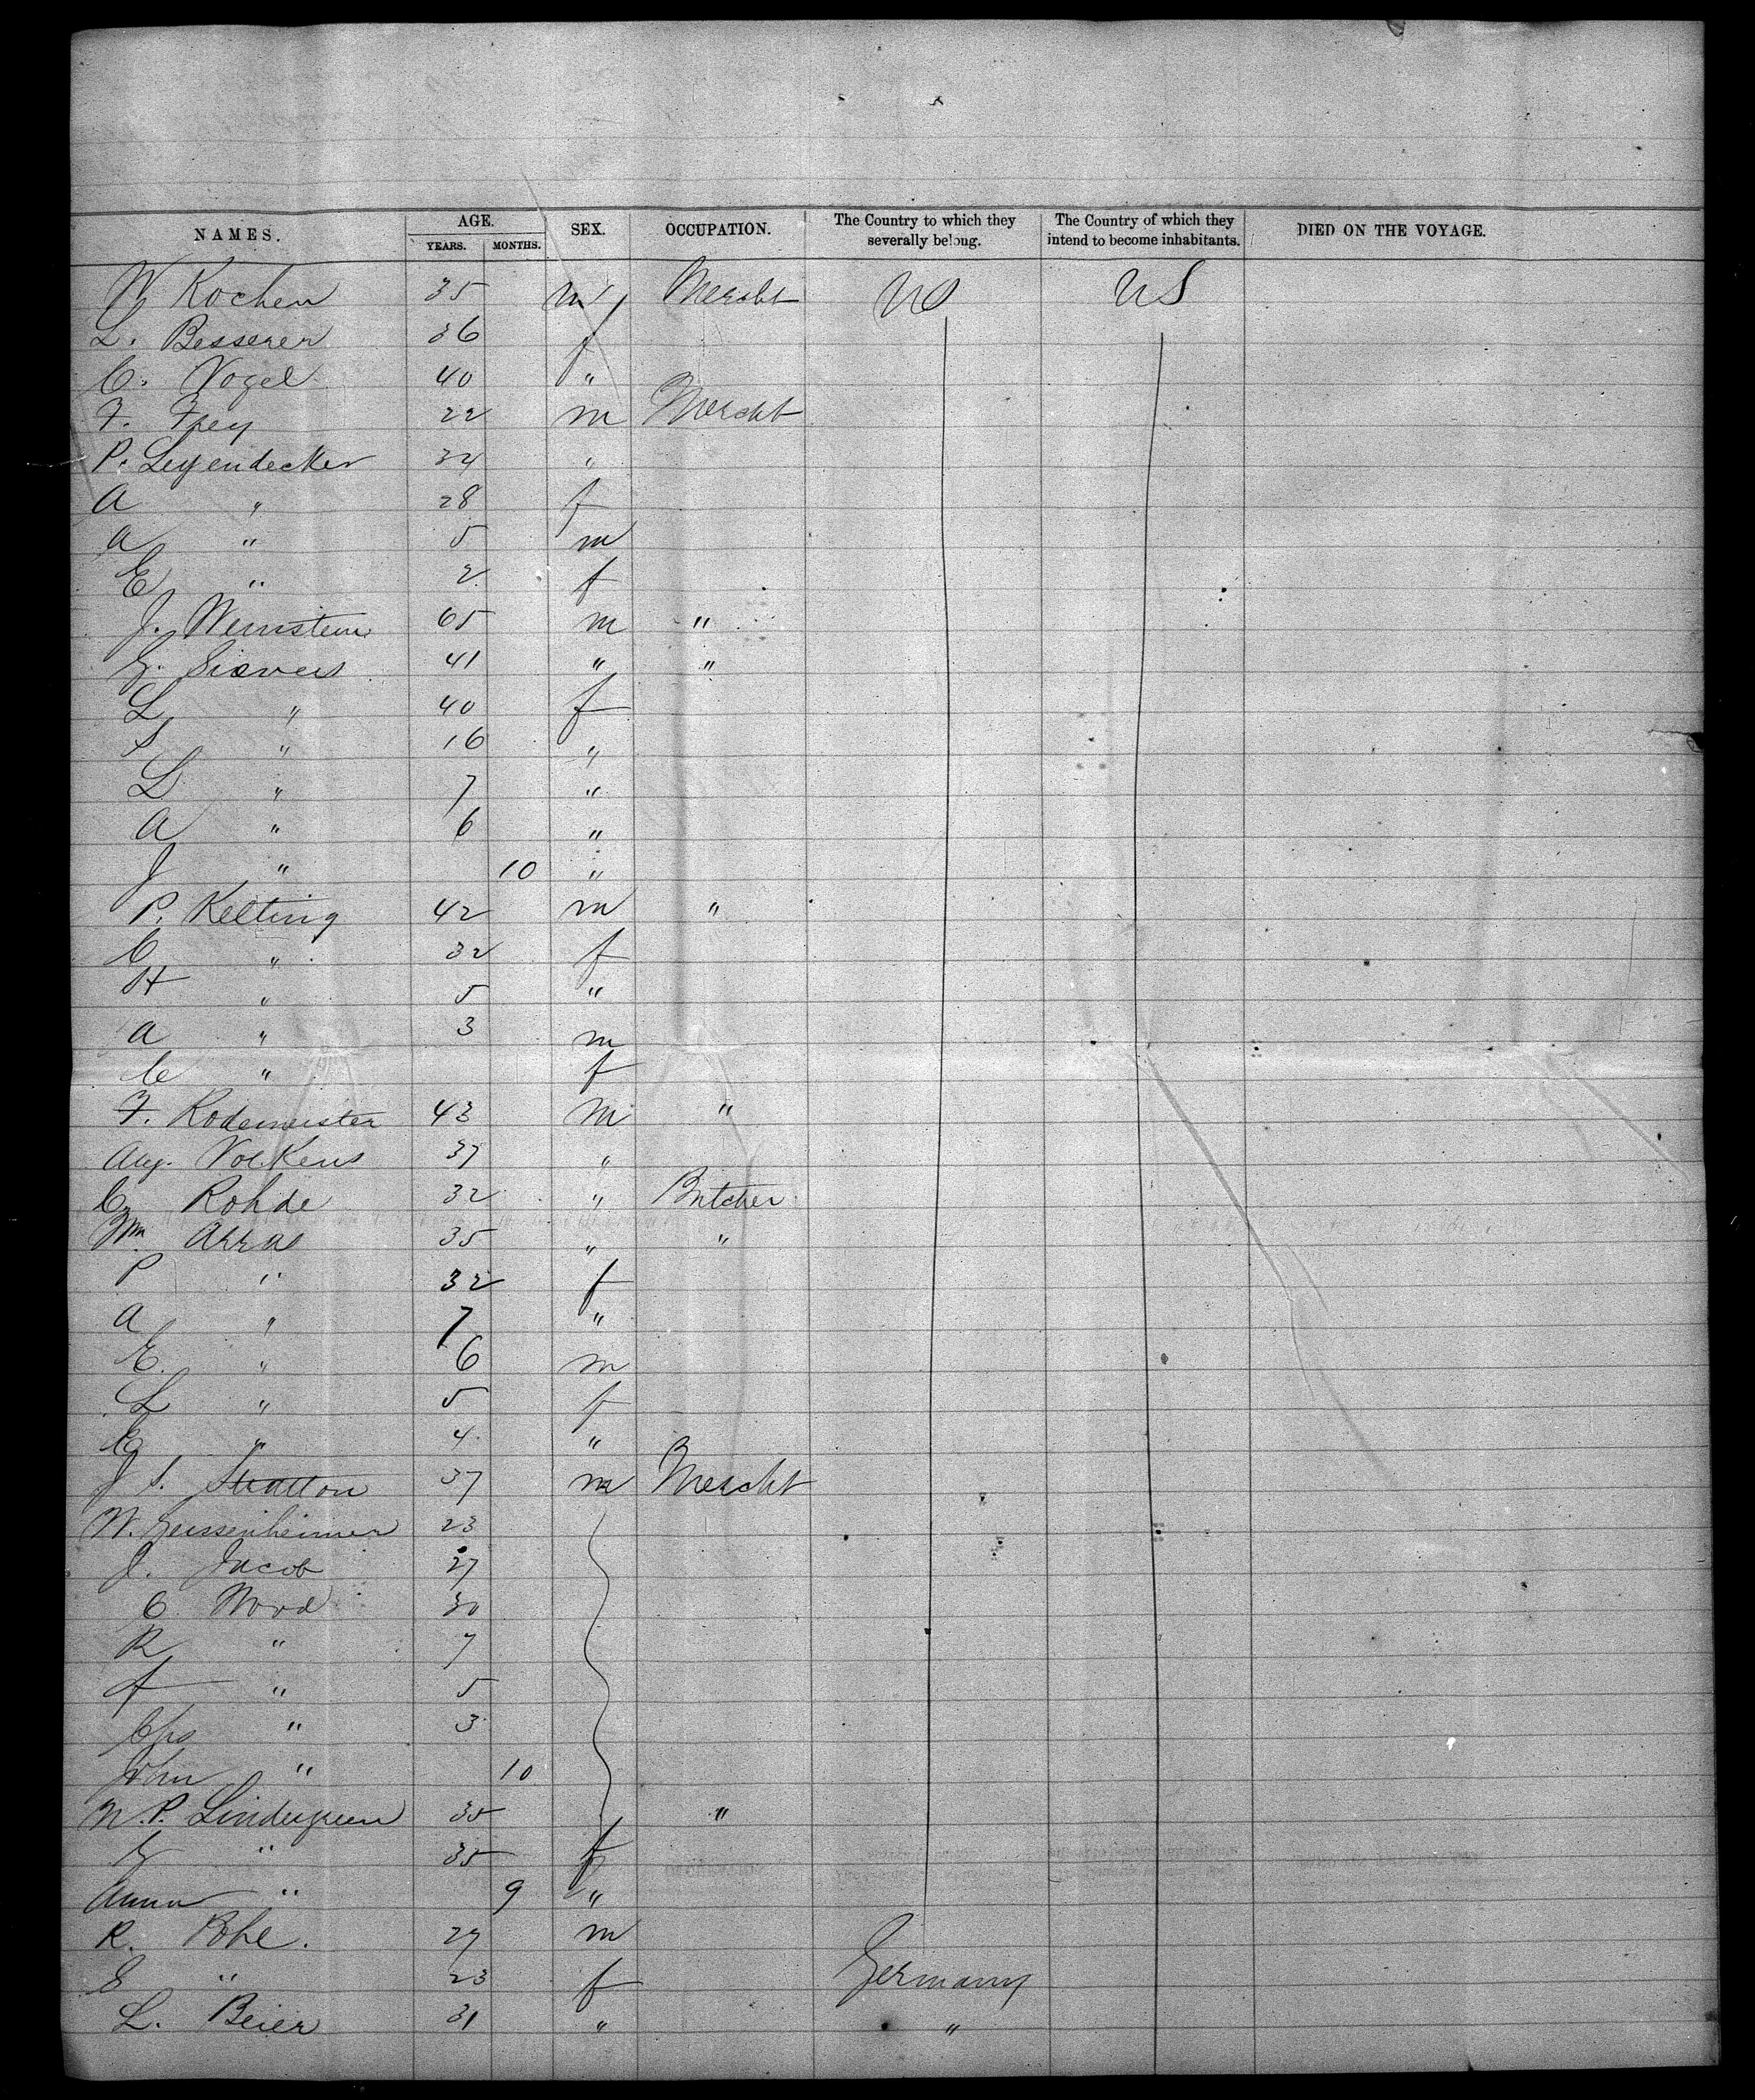 NAMES. AGE. YEARS. MONTHS. SEX. OCCUPATION. The Country to which they severally belong. The Country of which they intend to become inhabitants. DIED ON THE VOYAGE.
W Kochen 35 m Mercht US US
L. Besserer 36 f
C. Vogel 40 "
F. Frey 22 m Mercht
P. Leyendecker 34 "
A " 28 f
A " 5 m
E " 2 f
J. Weinstein 65 m "
G. Sievers 41 " "
L " 40 f
S " 16 "
L " 7 "
A " 6 "
J " 10 "
P. Kelting 42 m "
C " 32 f
H " 5 "
A " 3 m
C " f
F. Rodemeister 43 m "
Aug. Volkens 37 "
C Rohde 32 " Butcher
Wm Arras 35 " "
P " 32 f
A " 7 "
E. " 6 m
L " 5 f
C " 4 "
J S. Stratton 37 m Mercht
W. Geissenheimer 23
J. Jacob 27
C. Wood 30
R " 7
A " 5
Chs " 3
John " 10
N. P. Lindegreen 35 "
G " 35 f
Anna " 9 "
R. Bohe. 27 m
E " 23 f Germany
L. Beier 31 " "